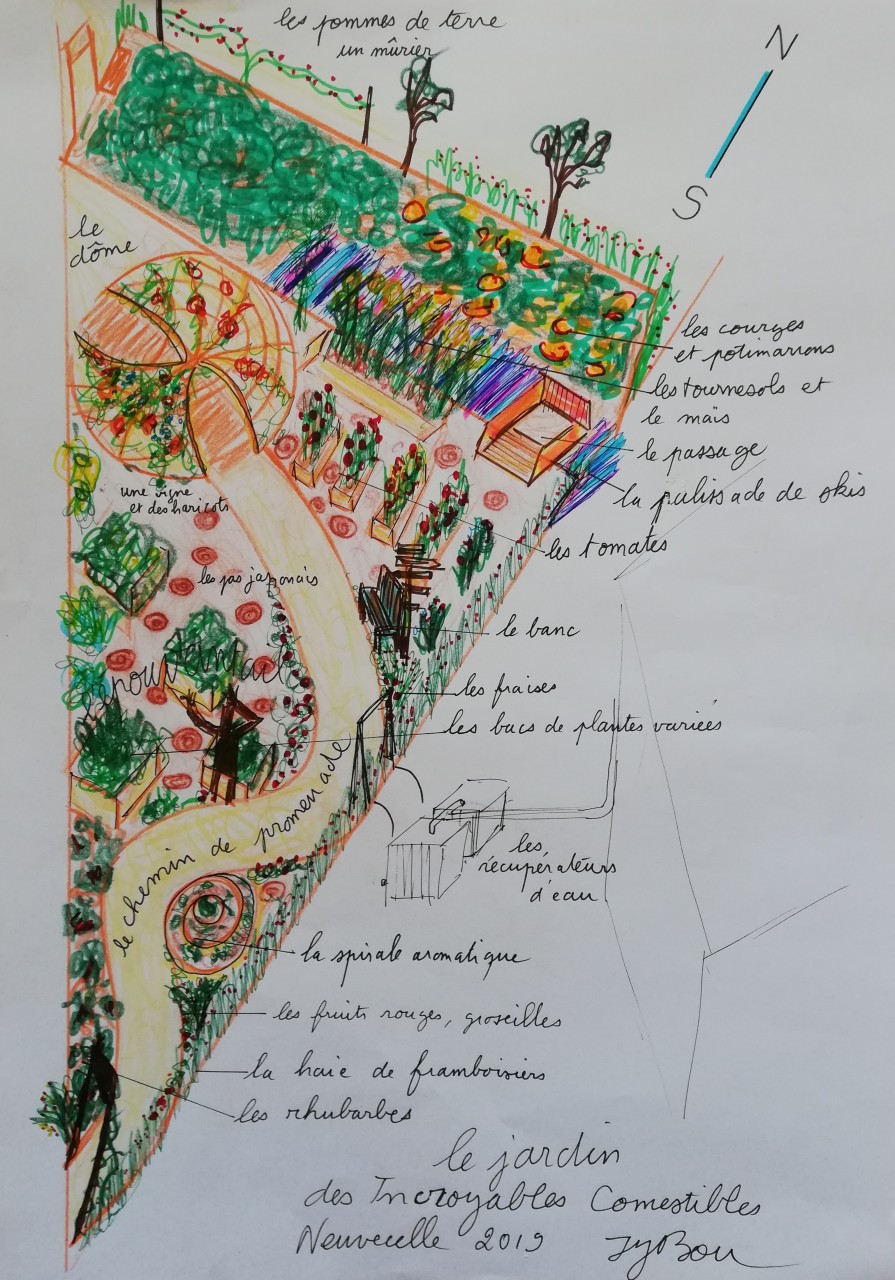 les pommes de terre
un mûrier
N
S
le
dôme
les courges
et potimarrons
les tournesols et
le maïs
le passage
la palissade de skis
une vigne
et des haricots
les tomates
les pas japonais
le banc
l'épouvantail
les fraises
les bacs de plantes variées
le chemin de promenade
les
récupérateurs
d'eau
la spirale aromatique
les fruits rouges, groseilles
la haie de framboisiers
les rhubarbes
le jardin
des Incroyables Comestibles
Neuvecelle 2019 JyBou